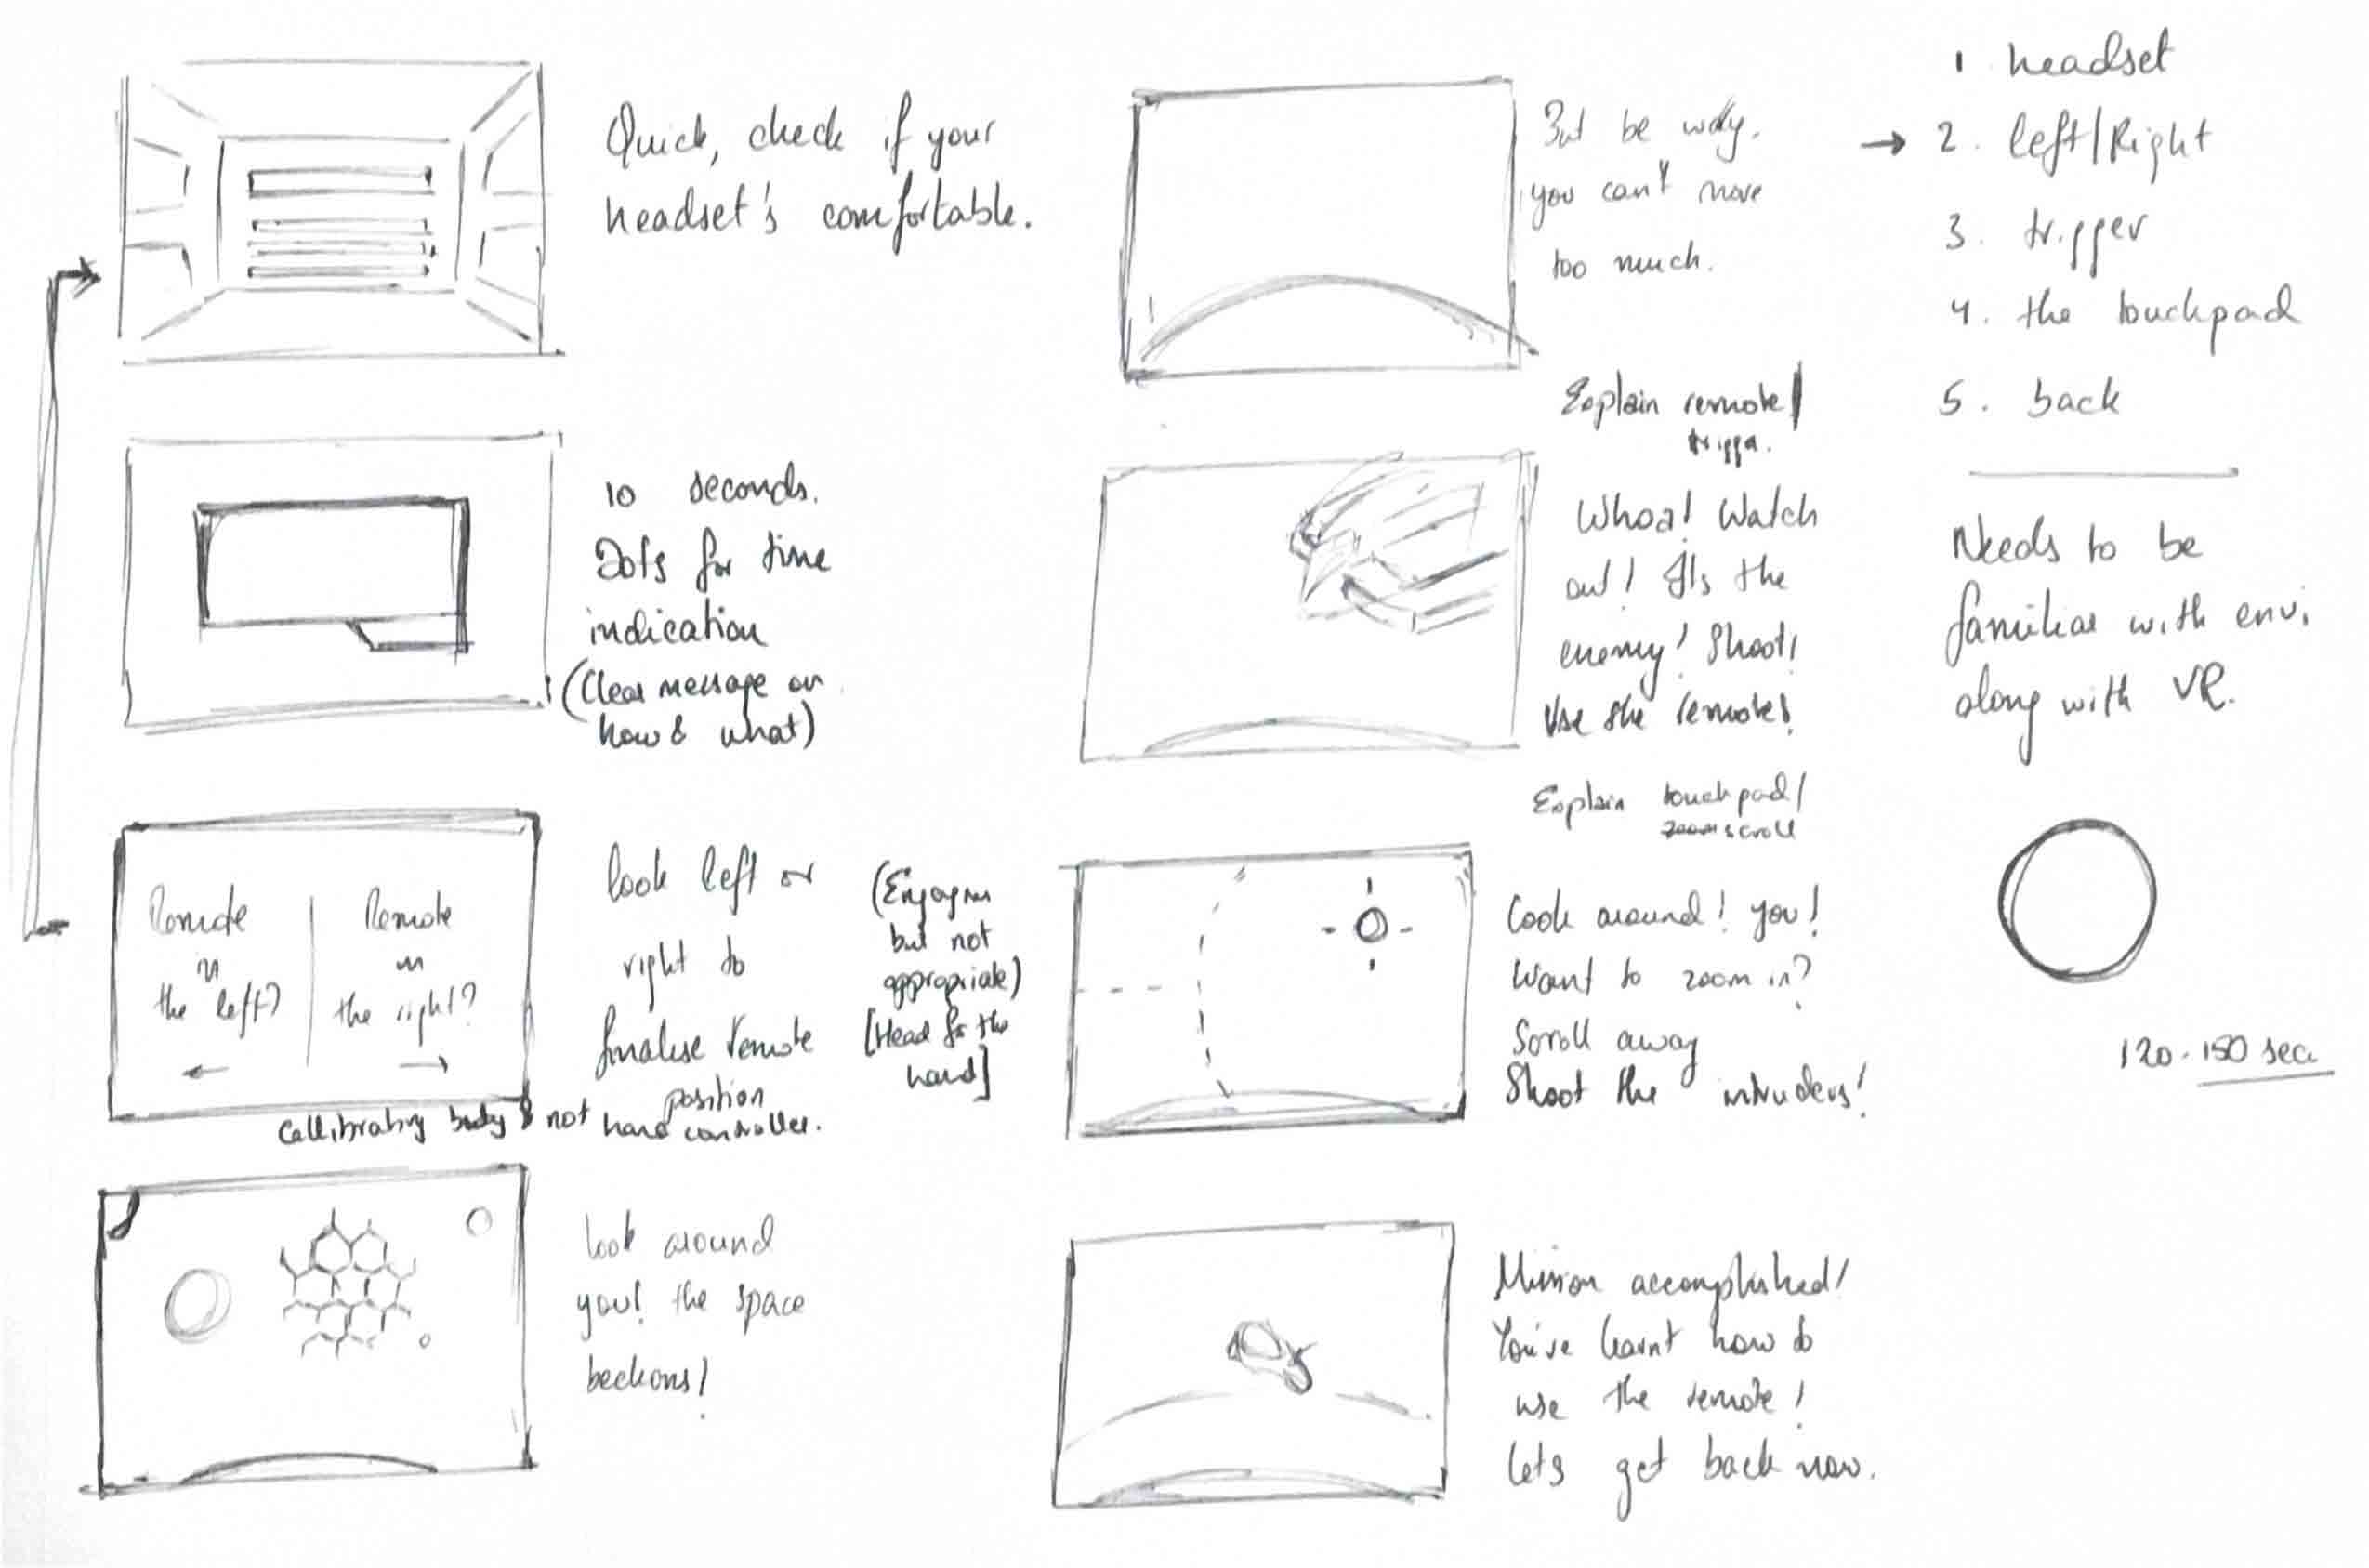 Quick, check if your
headset's comfortable.
10 seconds.
Dots for time
indication
(Clear message on
how & what)
Remote
in
the left?
←
Remote
in
the right?
→
look left or
right to
finalise remote
position
(Engaging
but not
appropriate)
[Head for the
hand]
Callibrating body & not hand controller.
look around
you! the space
beckons!
But be wary.
you can't move
too much.
Explain remote/
trigger.
Whoa! Watch
out! It's the
enemy! Shoot!
Use the remote!
Explain touchpad/
zoom scroll
Look around! you!
Want to zoom in?
Scroll away
Shoot the intruders!
Mission accomplished!
You've learnt how to
use the remote!
Lets get back now.
1 headset
→ 2. left/Right
3. trigger
4. the touchpad
5. back
Needs to be
familiar with envi.
along with VR.
120-150 sec.